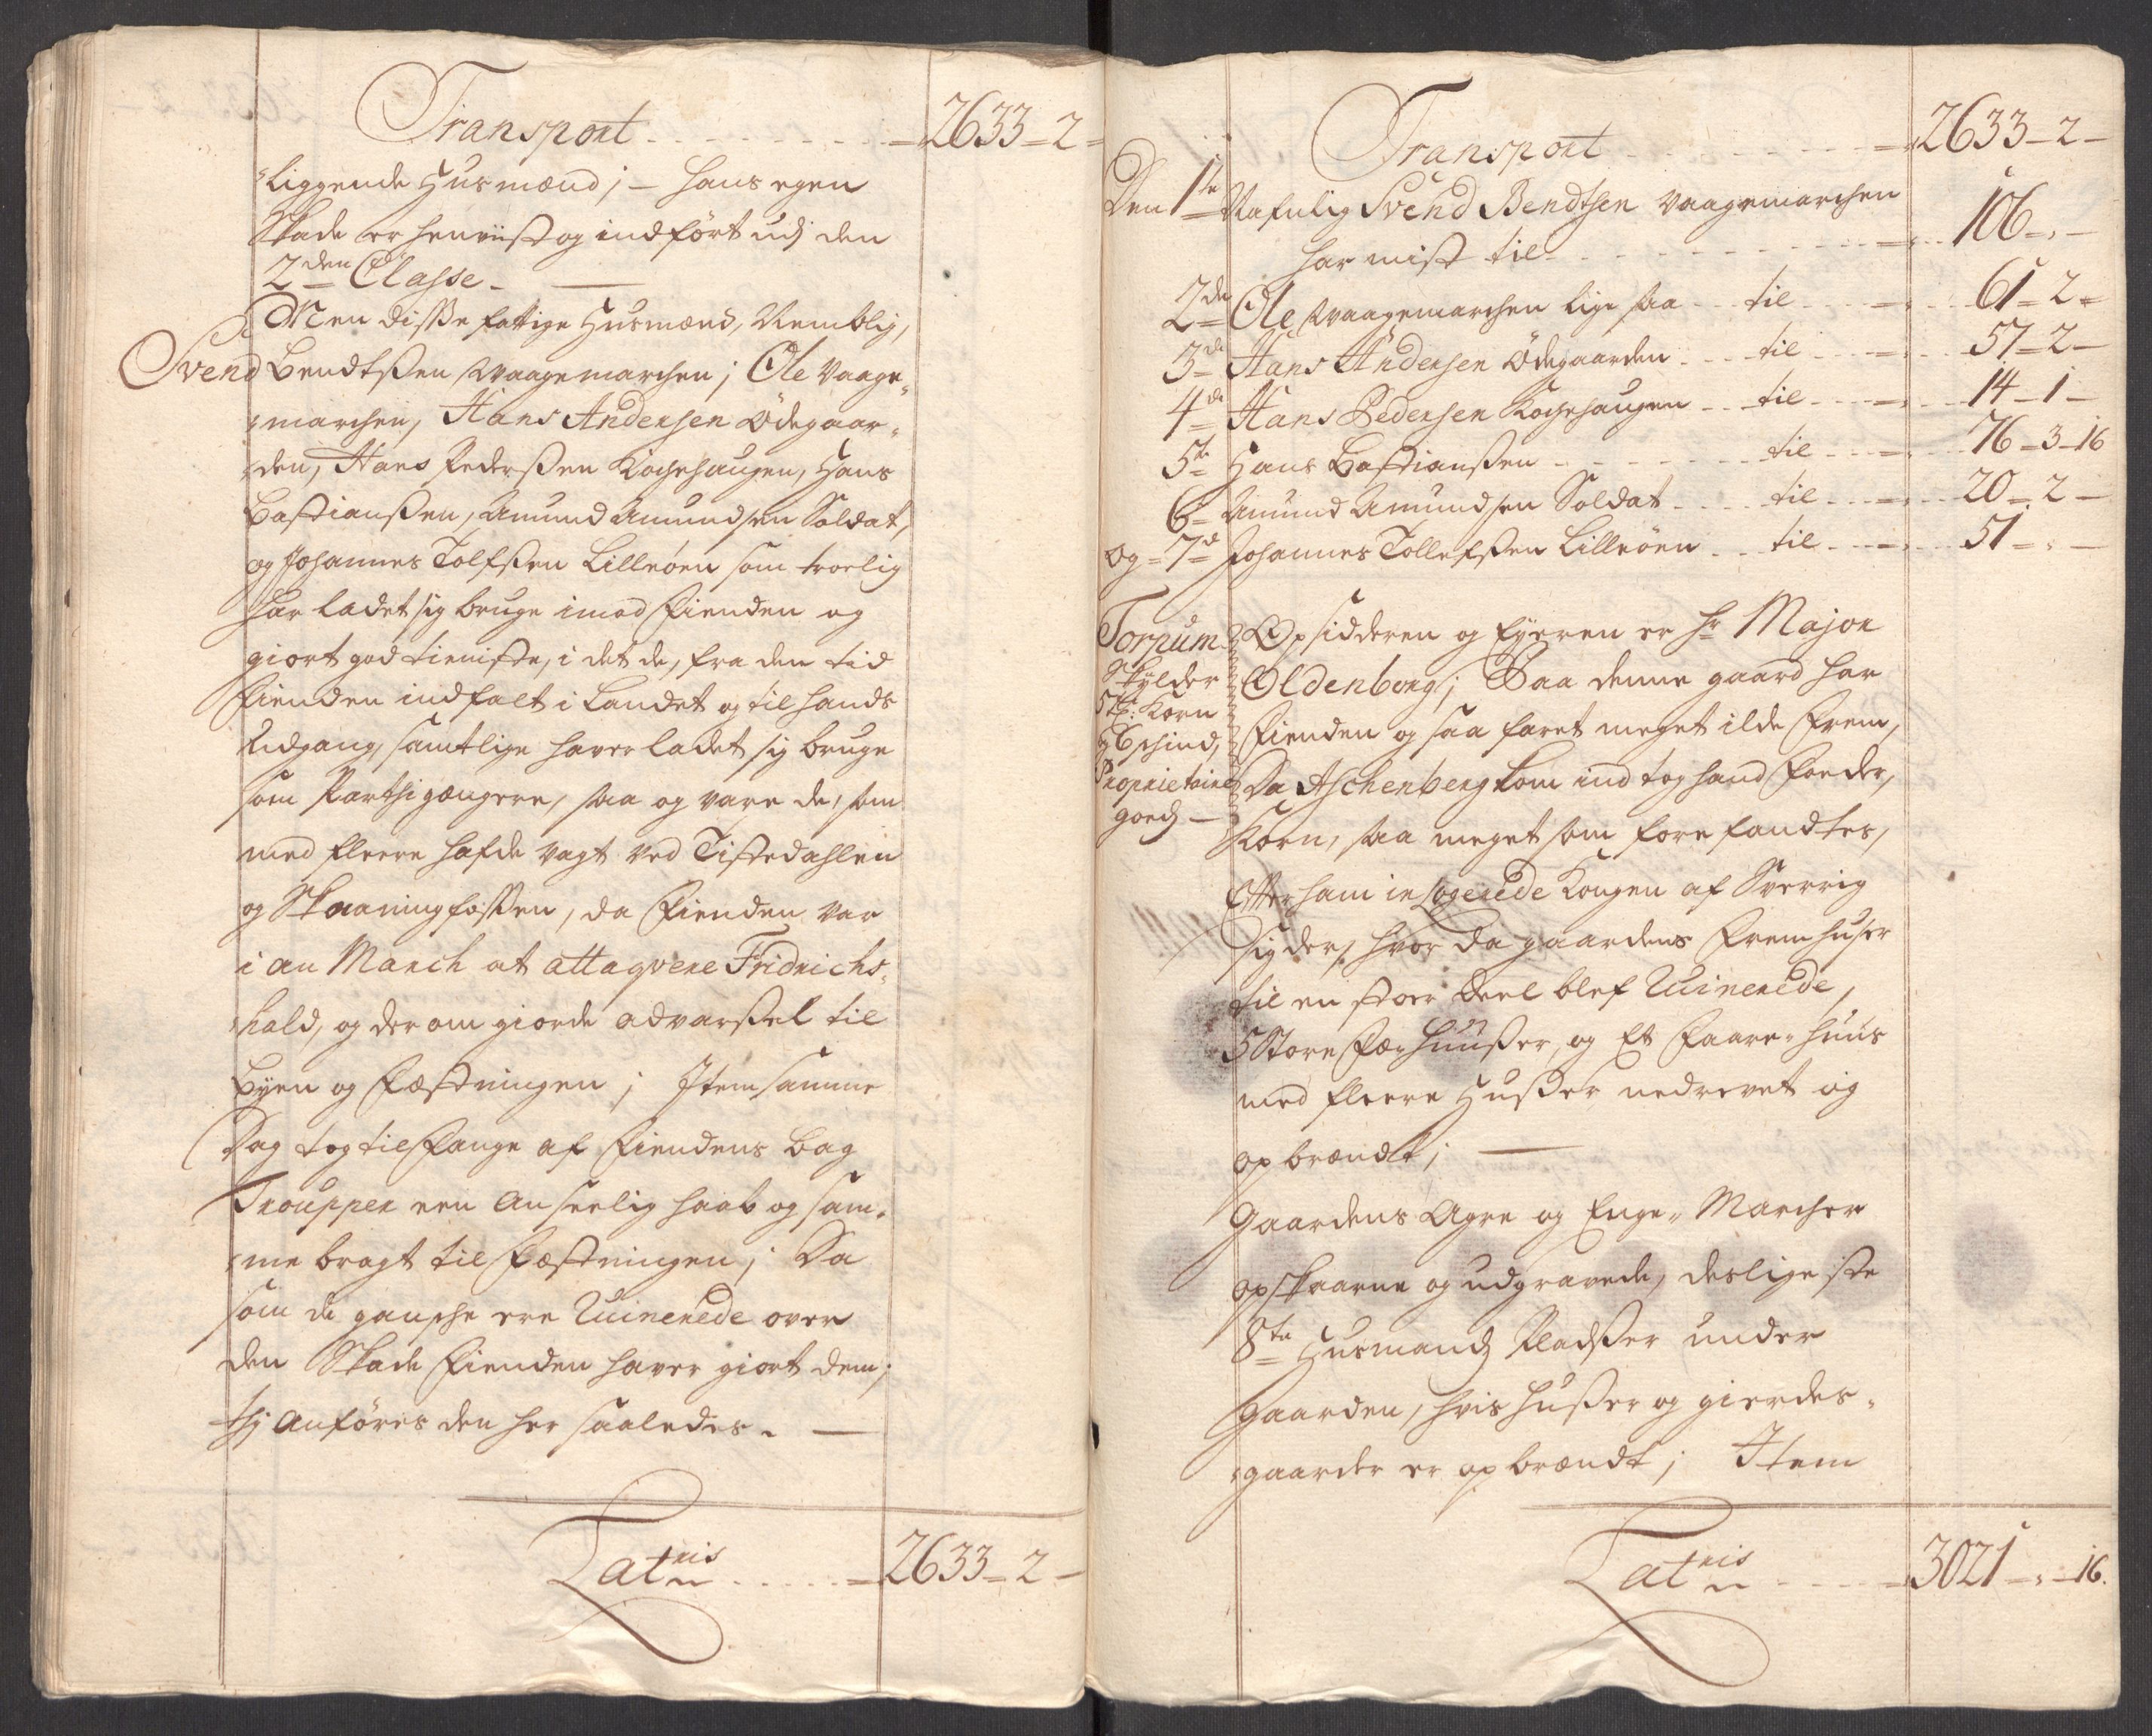 Transport - - - - - - - = 2633 = 2 =
"liggende Husmænd; - hans egen
Skade er henviist og indført udj den
2den Classe. -
Men disse fattige Husmænd, Nemblig,
Svend Bendtssen Waagemarchen; Ole Vaage,,
"marchen, Hans Andersen Ødegaar,,
"den, Hans Pederssen Kochehaugen, Hans
Bastianssen, Amund Amundsen Soldat,
og Johannes Tolfssen Lilleöen som troelig
har ladet sig bruge imod Fienden og
giort god tieniste, i det de, fra den tid
Fienden indfalt i Landet og til hands
Udgang, samtlige haver ladet sig bruge
som Parthigængere, saa og vare de, som
med fleere hafde vagt ved Tistedahlen
og Skaaningfossen, da Fienden var
i an March at attaqvere Fridrichs,,
"hald, og derom giorde advarssel til
Byen og Fæstningen; Item samme
Dag tog til Fange af Fiendens Bag
Troupper een anseelig haab og sam,,
"me bragt til Fæstningen; Da
som de gansche ere Ruinerede over
den Skade Fienden haver giort dem;
thj anføres den her saaledes. -
Latris - - - - = 2633 = 2 -
Transport - - - - - - - = 2633 - 2 -
Den 1te Nafnlig Svend Bendtsen Vaagemarchen
har mist til - - - - - - - 106 - " -
2den Ole Waagemarchen lige saa - - til - - - 61 = 2 =
3de Hans Andersen Ødegaarden - - til - - - 57 = 2 -
4de Hans Pedersen Kochehaugen - - til - - - 14 - 1 -
5te Hans Bastianssen - - - - - til - - - 76 - 3 - 16
6= Amund Amundsen Soldat - - - til - - - 20 = 2 -
og = 7de Johannes Tollefssen Lilleöen - - til - - - 51 = " -
Torpum
Skylder
5 Korn
6 schind,
Proprietaire
goeds -
Opsidderen og Eyeren er Hr Major
Oldenborg; Paa denne gaard har
Fienden og saa faret meget ilde Frem,
Da Aschenberg kom ind tog hand Foeder,
Korn, saa meget som fore fandtes,
Efter ham in logerede Kongen af Sverrig
sig der, hvor da gaardens Fremhuser
til en stoer Deel blef Ruinerede,
5 Store Fæe Huusser, og Et Faare,, huus
med fleere Husser nedrevet og
op brændt; -
Gaardens Agre og Enge,, Marcher
opskaarne og udgravede, desligeste
8te Husmands Pladsser under
Gaarden, hvis Husser og gierdes,,
"gaarder er op brændt; Item
Latris - - - - = 3021 - " - 16.